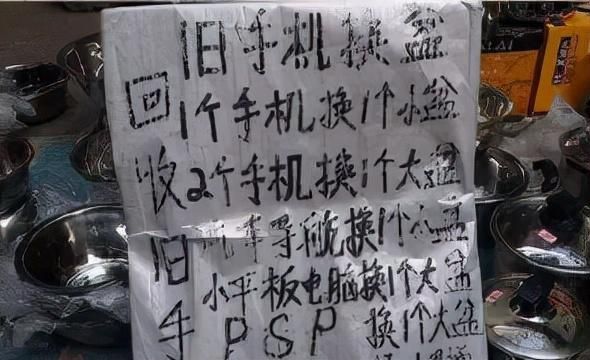 旧手机换盆
1个手机换1个小盆
2个手机换1个大盆
汽车导航换1个小盆
小平板电脑换1个大盆
PSP 换1个大盆
回收旧手